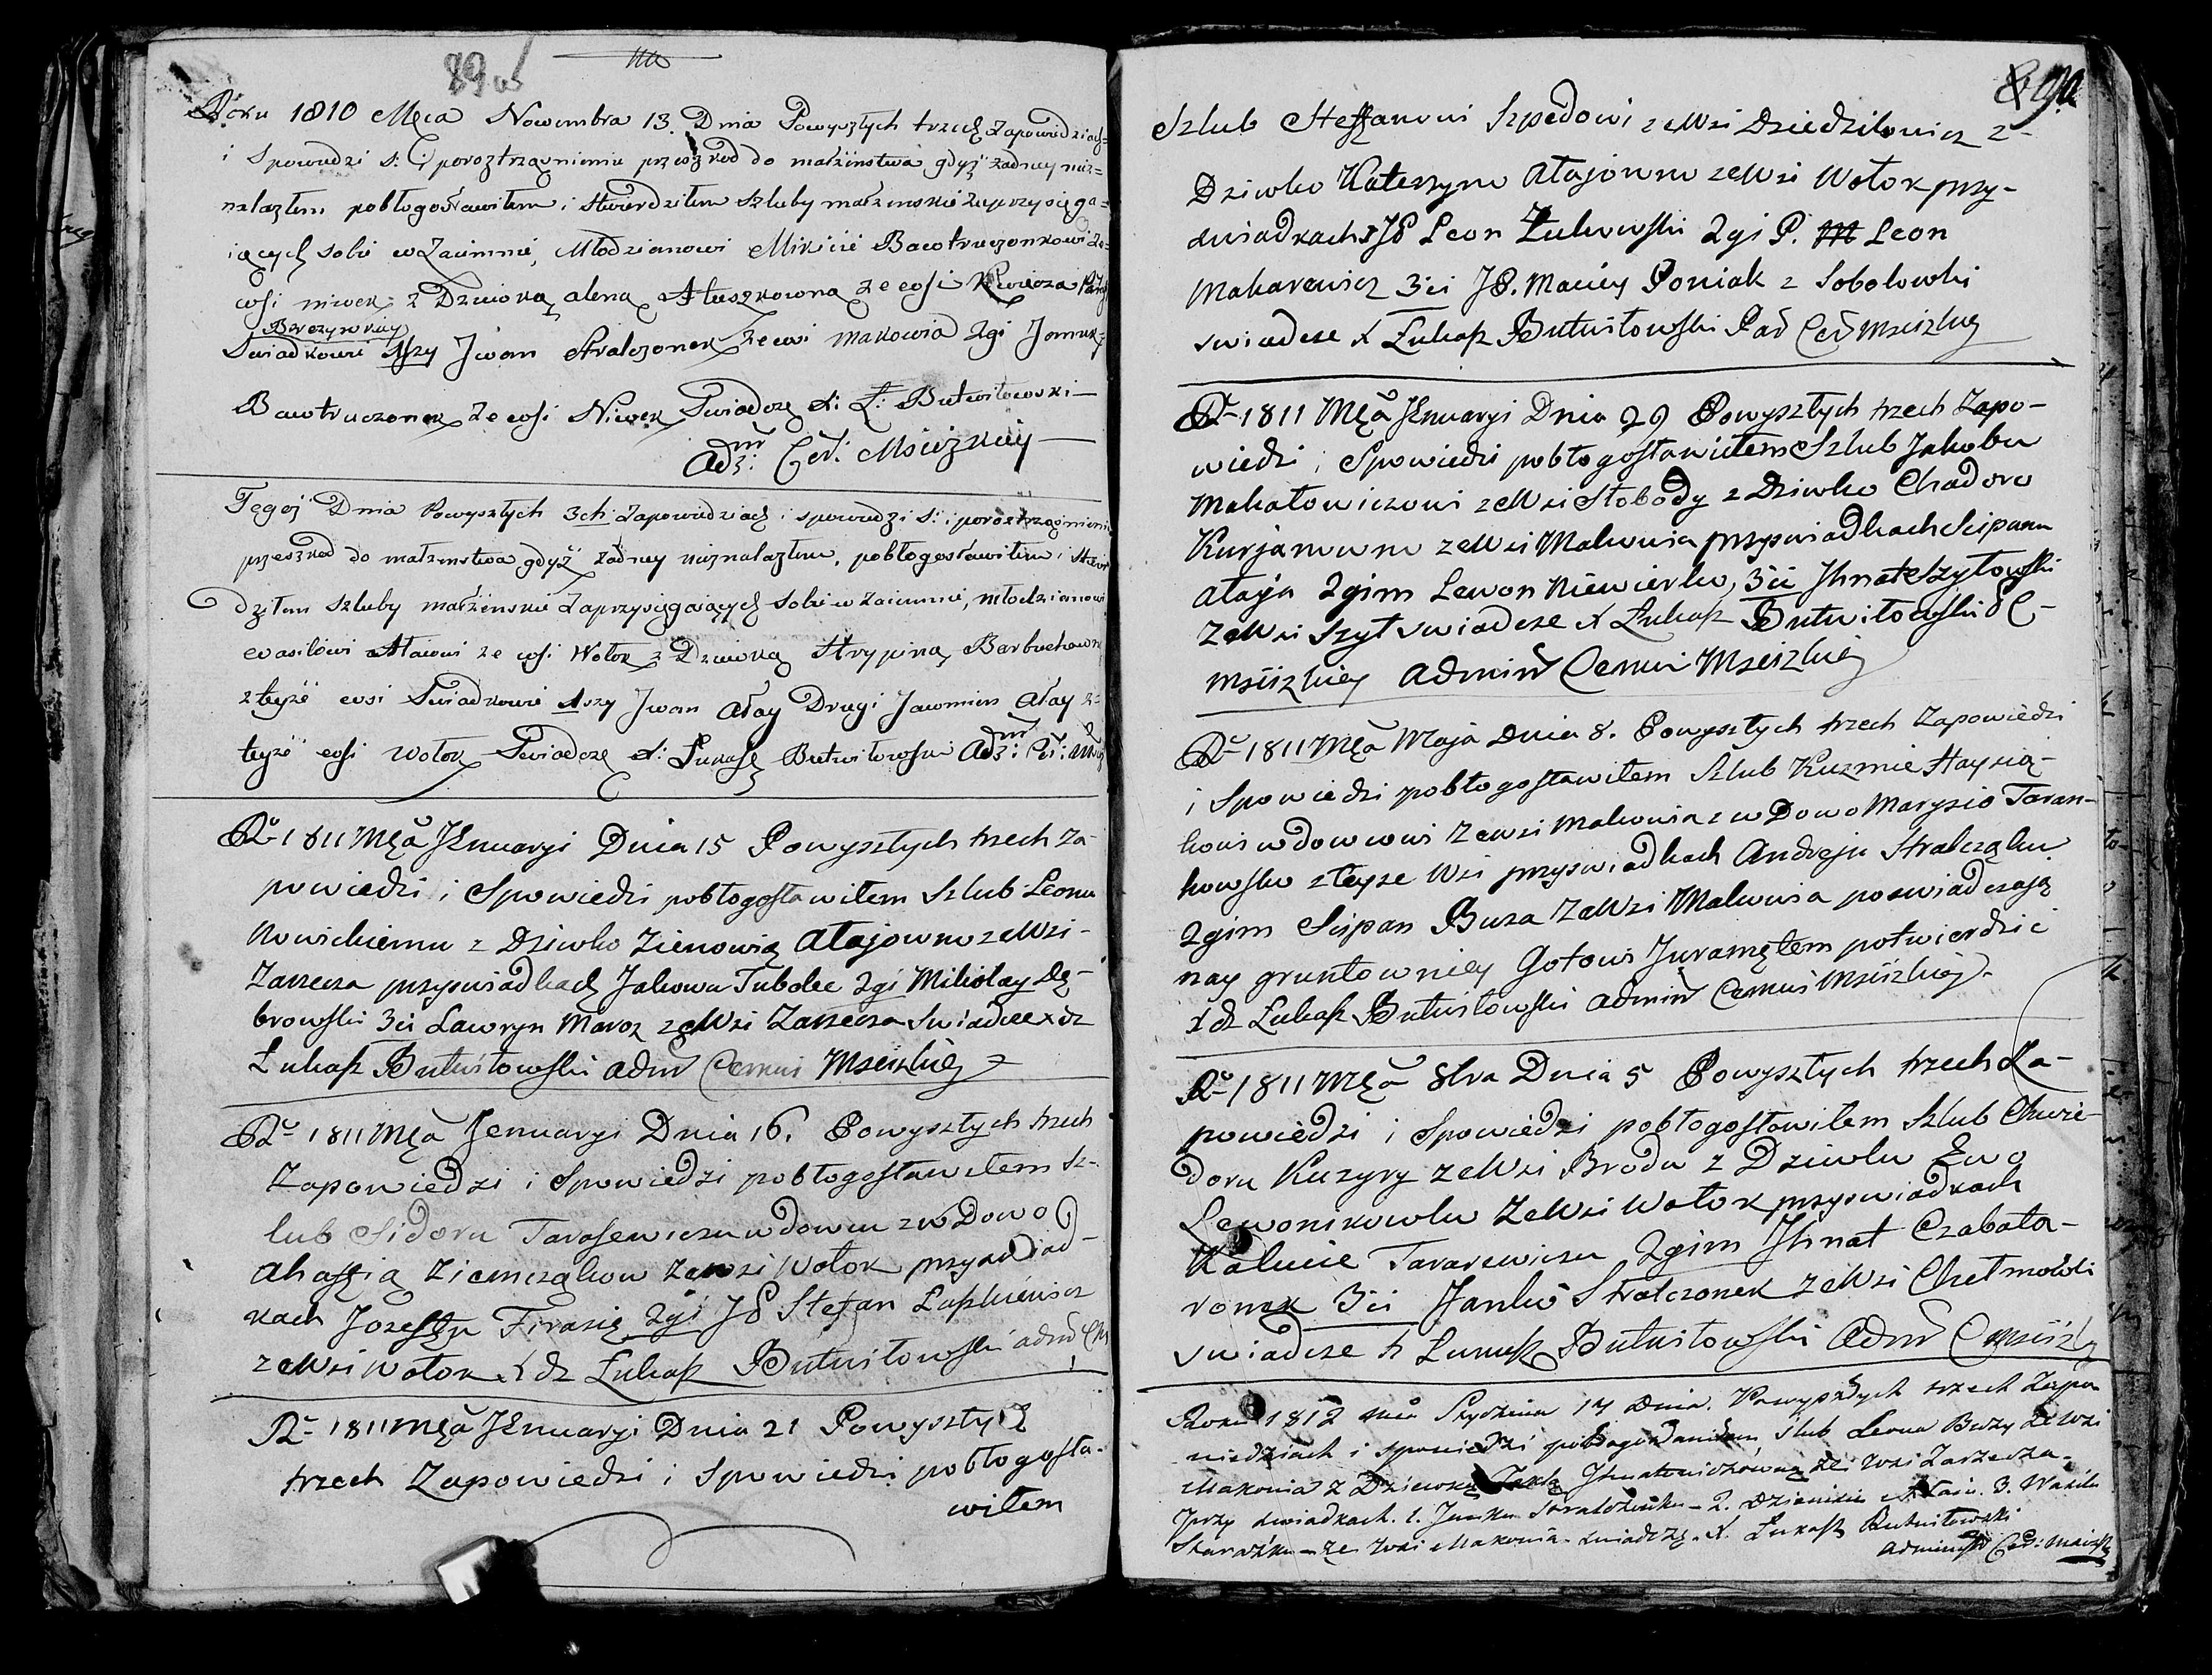 89
Roku 1810 Mca Nowembra 13. Dnia Powyszłych trzech Zapowiedziach
i Spowiedzi S: i poroztrząsnieniu przeszkod do małżinstwa gdyż żadney nie=
nalazłem pobłogosławiłem i stwierdziłem szluby małżenskie zaprzysięga=
iących sobie wzaiemnie, Młodzianowi Mikicie Bawtruczonkowi ze=
wsi niwek z Dziewką aleną Ałuszkowną ze wsi
Berezynskiey
Swiadkowie 1szy Jwan Stralczonek ze wsi makowia 2gi
Bawtruczonek ze wsi Niwek Swiadczę X: Ł: Butwiłowski
Adm: Cer: Msciżkiey
Tegoż Dnia Powyszłych 3ch zapowiedziach i spowiedzi S: i poroztrząsnieniu
przeszkod do małżenstwa gdyż żadney nieznalazłem, pobłogosławiłem i stwier
dziłem szluby małżenskie zaprzysięgaiących sobie wzaiemnie, młodzianowi
wasilowi Ałaiowi ze wsi Wołok z Dziewką Hrypiną Barbuchowną
z teyże wsi Swiadkowie 1szy Jwan Ałay Drugi Jawmien Ałay z=
teyże wsi Wołok Swiadczę X: Łukasz Butwiłowski Adm: Cer:
R 1811 Mca JEnuaryi Dnia 15 Powyszłych trzech Za-
powiedzi i Spowiedzi pobłogosławiłem Szlub Leonu
Nowickiemu z Dziwko Zienowią Ałajowno zeWsi-
Zarzecza przyswiadkach Jakowu Tubolec 2gi Mikołay Dę-
browski 3ci Lawryn Maroz zeWsi Zarzecza Swiadcze x dz
Łukasz Butwiłowski adm Cerkwi Msciżkiey
R 1811 Mca Jenuaryi Dnia 16. Powyszłych trzech
Zapowiedzi i Spowiedzi pobłogosławiłem Sz-
lub Sidoru Tarasewiczu wdowcu zwDowo
ahafią Ziemcząkow zewsi Wołok przyswiad-
kach Jozefu Firasię 2gi JP Stefan Łapkiewicz
zeWsi Wołok X dz Łukasz Butwiłowski adm CM
R 1811 Mca JEnuaryi Dnia 21 Powyszłych
trzech Zapowiedzi i Spowiedzi pobłogosła-
wiłem
90
Szlub Steffanowi Szpedowi zeWsi Dziedziłowicz z-
Dziwko Katerzyno Ałajowno zeWsi Wołok przy-
swiadkach JP Leon Żukowski 2gi P. Leon
Makarewicz 3ci JP. Maciey Poniak z Sobolowki
swiadcze X Łukasz Butwiłowski Par Cer Msciżkiey
R 1811 Mca JEnuaryi Dnia 29 Powyszłych trzech Zapo-
wiedzi i Spowiedzi pobłogosławiełem Szlub Jakobu
Makałowiczowi zeWsi Słobody z Dziwko Chadoro
Kurjanowno zeWsi Makowia przyswiadkach Scipanu
ałaja 2gim Lewon Niewierko, 3ci Jhnat Szyłowski
zeWsi Szył swiadcze X Łukasz Butwiłowski P C-
msciżkiey Admin Cerkwi Msciżkiey
R 1811 Mca Maja Dnia 8. Powyszłych trzech Zapowiedzi
i Spowiedzi pobłogosławiłem Szlub Kuzmie Haysią-
kowi wdowcowi zewsi Makowia z wDowo Marysio Taran-
kowsko zteyże Wsi przyswiadkach Andrzeju Stralcząku
2gim Scipan Buza zeWsi Makowia poswiadczają
nay gruntowniey Gotowi Juramętem potwierdzić
x dz Łukasz Butwiłowski admin Cerkwi Msciżkiey
R 1811 Mca 8bra Dnia 5 Powyszłych trzech Za-
powiedzi i Spowiedzi pobłogosławiłem Szlub Chwie-
doru Kuzyry zeWsi Broda z Dziwku Ewo
Lewonikowku zeWsi Wołok przyswiadkach
Kalucie Tararewiczu 2gim Jhnat Czabata-
ronek 3ci Janko Stralczonek zeWsi Chełmowki
swiadcze X Łukasz Butwiłowski Adm C Msciżkiey
Roku 1812 Mca Stycznia 14 Dnia. Powyszłych trzech Zapo
wiedziach i spowiedzi pobłogosławiłem ślub Leona Buzy ze Wsi
Makowia z Dziewką Teklą Jhnatowiczowną ze Wsi Zarzecza-
Przy swiadkach. 1. Janku Stralczonku - 2. Dziemidu Ałaiu. 3. Wasilu
- ze Wsi Makowia- swiadczę. X. Łukasz Butwiłowski
Administ Cer: Mscisk